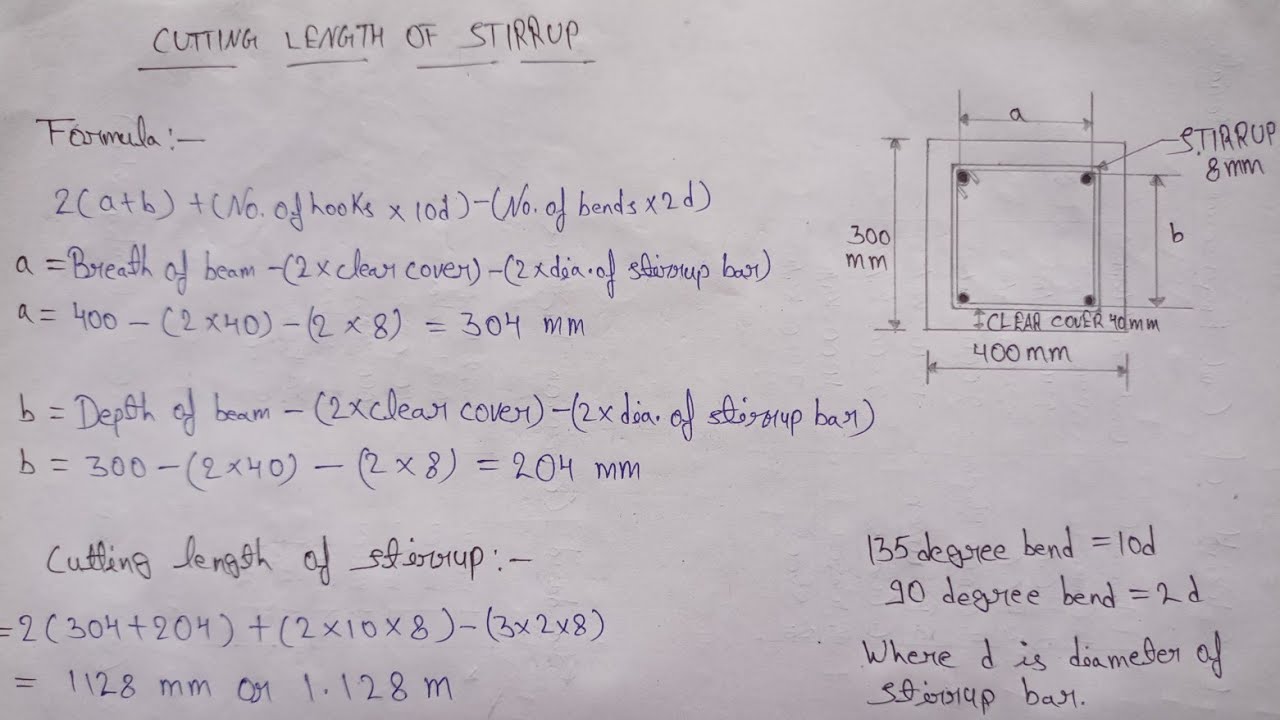 CUTTING LENGTH OF STIRRUP
Formula:-
2(a+b) + (No. of hooks × 10d) - (No. of bends × 2d)
a = Breath of beam - (2 × clear cover) - (2 × dia. of stirrup bar)
a = 400 - (2 × 40) - (2 × 8) = 304 mm
b = Depth of beam - (2 × clear cover) - (2 × dia. of stirrup bar)
b = 300 - (2 × 40) - (2 × 8) = 204 mm
Cutting length of stirrup:-
= 2(304 + 204) + (2 × 10 × 8) - (3 × 2 × 8)
= 1128 mm or 1.128 m
a
STIRRUP
8mm
300
mm
b
CLEAR COVER 40mm
400mm
135 degree bend = 10d
90 degree bend = 2d
Where d is diameter of
stirrup bar.